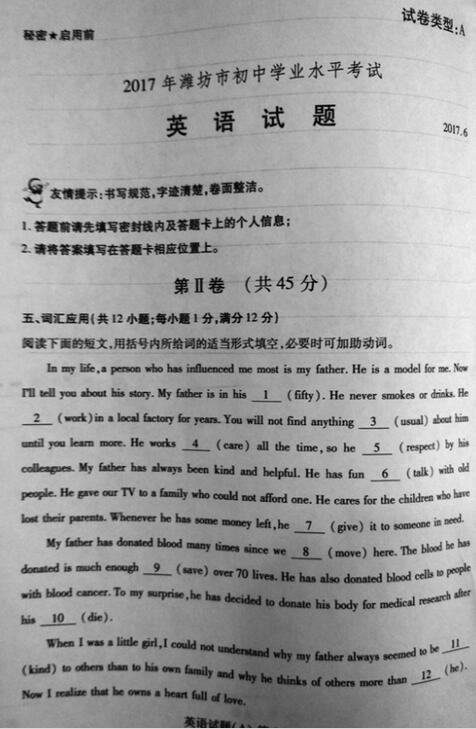 试卷类型:A
秘密★启用前
2017年潍坊市初中学业水平考试
英 语 试 题
2017.6
友情提示:书写规范,字迹清楚,卷面整洁。
1.答题前请先填写密封线内及答题卡上的个人信息;
2.请将答案填写在答题卡相应位置上。
第Ⅱ卷 (共45分)
五、词汇应用(共12小题;每小题1分,满分12分)
阅读下面的短文,用括号内所给词的适当形式填空,必要时可加助动词。
In my life,a person who has influenced me most is my father. He is a model for me. Now
I'll tell you about his story. My father is in his __1__ (fifty). He never smokes or drinks. He
__2__ (work)in a local factory for years. You will not find anything __3__ (usual) about him
until you learn more. He works __4__ (care) all the time, so he __5__ (respect) by his
colleagues. My father has always been kind and helpful. He has fun __6__ (talk) with old
people. He gave our TV to a family who could not afford one. He cares for the children who have
lost their parents. Whenever he has some money left,he __7__ (give) it to someone in need.
My father has donated blood many times since we __8__ (move) here. The blood he has
donated is much enough __9__ (save) over 70 lives. He has also donated blood cells to people
with blood cancer. To my surprise,he has decided to donate his body for medical research after
his __10__ (die).
When I was a little girl,I could not understand why my father always seemed to be __11__
(kind) to others than to his own family and why he thinks of others more than __12__ (he).
Now I realize that he owns a heart full of love.
英语试题(A)